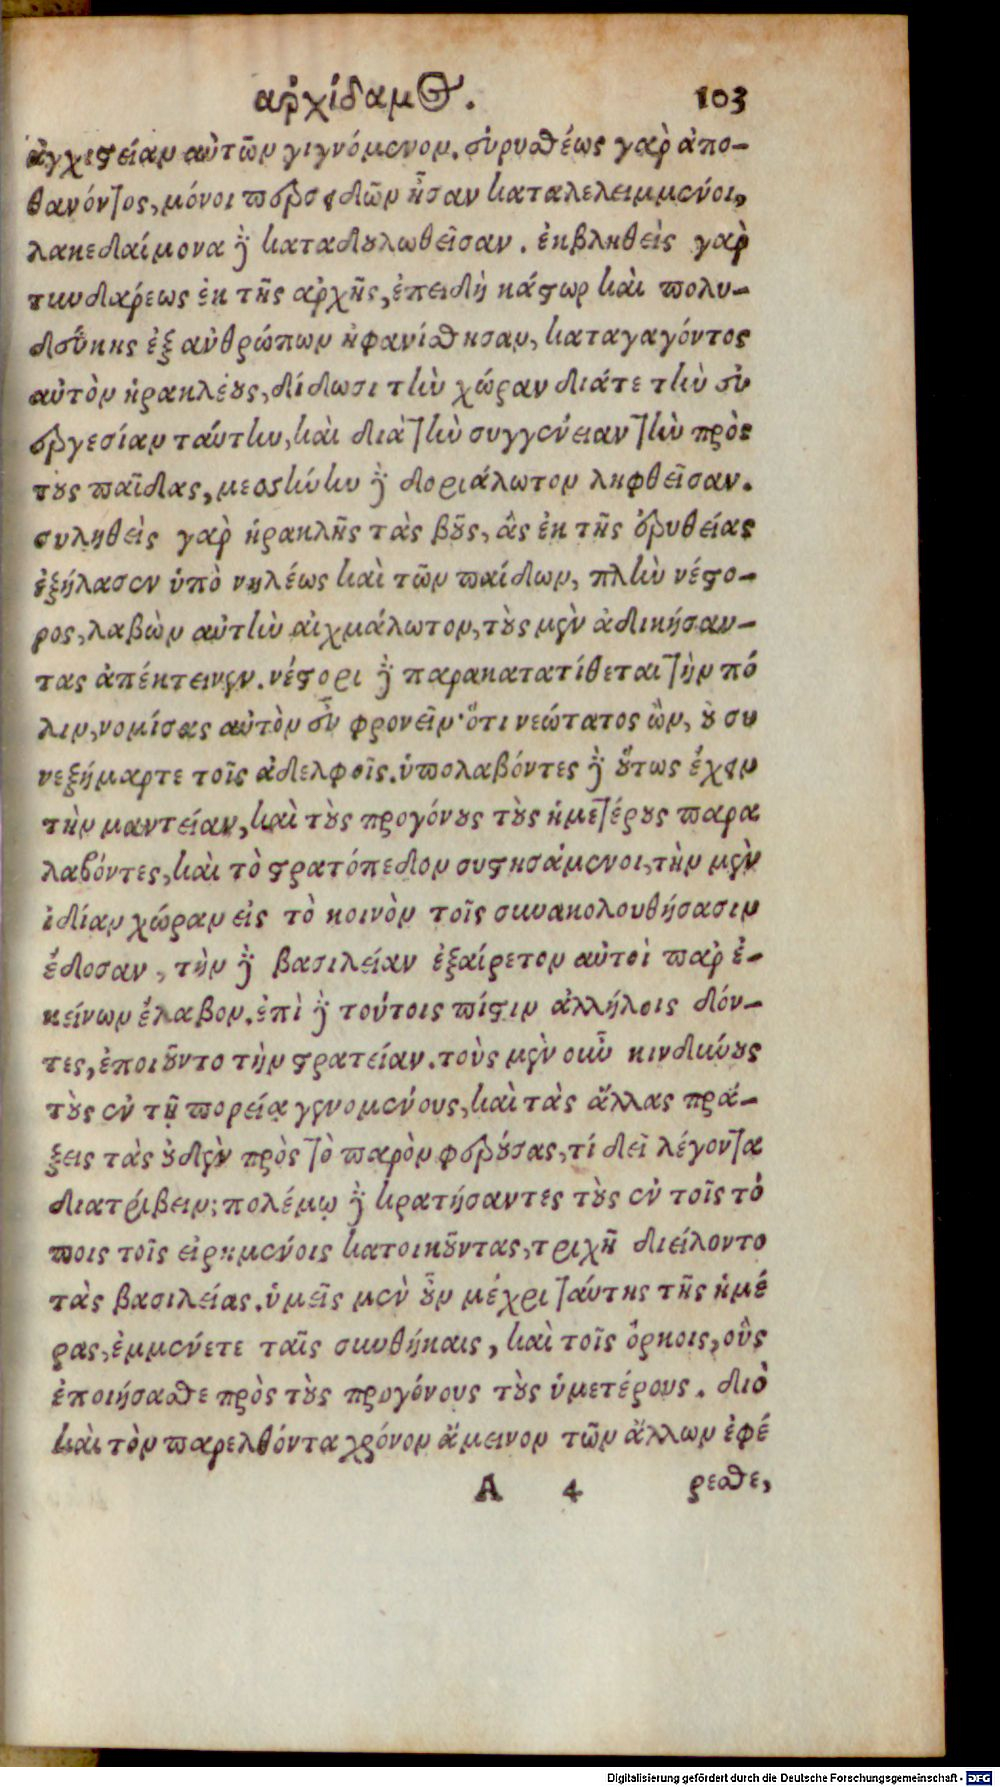 ἀρχίδαμος. 103
ἀγχιστείαν αὐτῶν γιγνόμενον. εὐρυσθέως γὰρ ἀπο-
θανόντος, μόνοι περσειδῶν ἦσαν καταλελειμμένοι,
λακεδαίμονα δὲ καταδουλωθεῖσαν. ἐκβληθεὶς γὰρ
τυνδαρέως ἐκ τῆς ἀρχῆς, ἐπειδὴ κάστωρ καὶ πολυ-
δεύκης ἐξ ἀνθρώπων ἠφανίσθησαν, καταγαγόντος
αὐτὸν ἡρακλέους, δίδωσι τὴν χώραν διάτε τὴν εὐ
εργεσίαν ταύτην, καὶ διὰ τὴν συγγένειαν τὴν πρὸς
τοὺς παῖδας, μεσσήνην δὲ δοριάλωτον ληφθεῖσαν.
συληθεὶς γὰρ ἡρακλῆς τὰς βοῦς, ἃς ἐκ τῆς ἐρυθείας
ἐξήλασεν ὑπὸ νηλέως καὶ τῶν παίδων, πλὴν νέστο-
ρος, λαβὼν αὐτὴν αἰχμάλωτον, τοὺς μὲν ἀδικήσαν-
τας ἀπέκτεινεν. νέστορι δὲ παρακατατίθεται τὴν πό
λιν, νομίσας αὐτὸν εὖ φρονεῖν· ὅτι νεώτατος ὢν, οὐ συ
νεξήμαρτε τοῖς ἀδελφοῖς. ὑπολαβόντες δὲ οὕτως ἔχειν
τὴν μαντείαν, καὶ τοὺς προγόνους τοὺς ἡμετέρους παρα
λαβόντες, καὶ τὸ στρατόπεδον συστησάμενοι, τὴν μὲν
ἰδίαν χώραν εἰς τὸ κοινὸν τοῖς συνακολουθήσασιν
ἔδοσαν, τὴν δὲ βασιλείαν ἐξαίρετον αὐτοὶ παρ ἐ-
κείνων ἔλαβον. ἐπὶ δὲ τούτοις πίστιν ἀλλήλοις δόν-
τες, ἐποιοῦντο τὴν στρατείαν. τοὺς μὲν οὖν κινδύνους
τοὺς ἐν τῇ πορείᾳ γενομένους, καὶ τὰς ἄλλας πρά-
ξεις τὰς οὐδὲν πρὸς τὸ παρὸν φερούσας, τί δεῖ λέγοντα
διατρίβειν; πολέμῳ δὲ κρατήσαντες τοὺς ἐν τοῖς τό
ποις τοῖς εἰρημένοις κατοικοῦντας, τριχῆ διείλοντο
τὰς βασιλείας. ὑμεῖς μὲν οὖν μέχρι ταύτης τῆς ἡμέ
ρας, ἐμμένετε ταῖς συνθήκαις, καὶ τοῖς ὅρκοις, οὓς
ἐποιήσασθε πρὸς τοὺς προγόνους τοὺς ὑμετέρους. διὸ
καὶ τὸν παρελθόντα χρόνον ἄμεινον τῶν ἄλλων ἐφέ
A 4 ρεσθε,
Digitalisierung gefördert durch die Deutsche Forschungsgemeinschaft - DFG